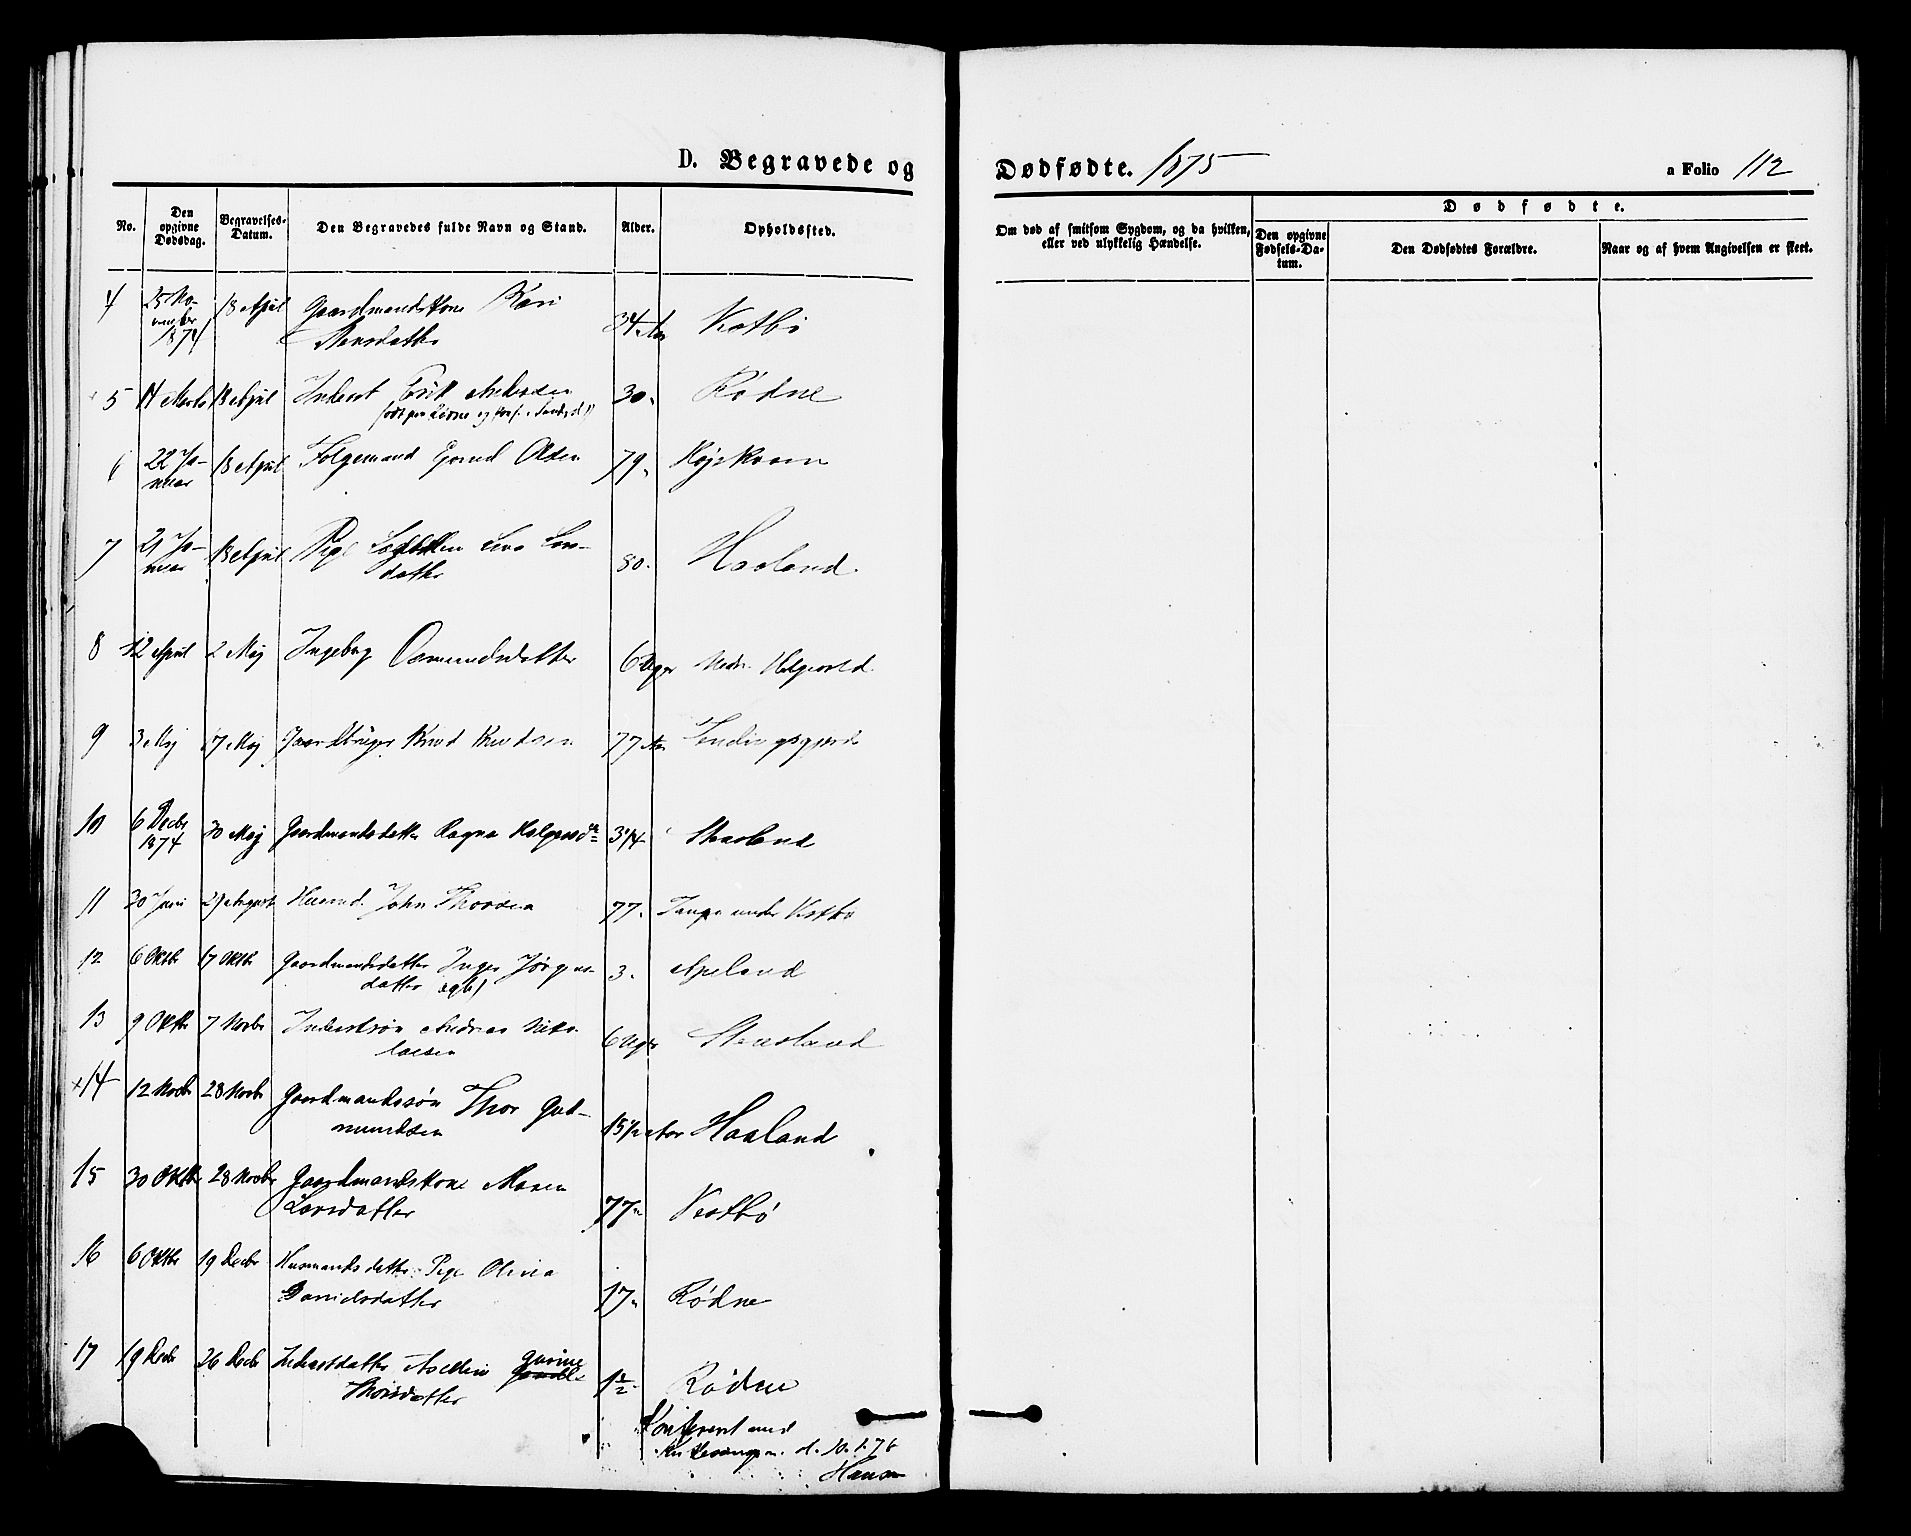 D. Begravede og
Dødfødte. 1875
a Folio 112
No.
Den opgivne Dødsdag.
Begravelses-Datum.
Den Begravedes fulde Navn og Stand.
Alder.
Opholdssted.
Om død af smitsom Sygdom, og da hvilken, eller ved ulykkelig Hændelse.
Dødfødte.
Den opgivne Fødsels-Datum.
Den Dødfødtes Forældre.
Naar og af hvem Angivelsen er skeet.
4 25 No- 18 April Gaardmandskone Kari 34 Aar Vestbø
vember
1874
5 14 Marts 18 April Inderst Erik 30 Rødne
6 22 Ja- 18 April Folgemand Olsen 79
nuar
7 21 Ja- 18 April Pige Lars- 80 Haaland
nuar datter
8 12 April 2 Maj Ingeborg Osmundsdatter 6 Uger Nedre
9 3 Maj 17 Maj Knud Knudsen 77 Aar
10 6 Decbr 30 Maj Gaardmandsdatter Ragna 3 1/4
1874
11 30 Juni 29 August Husmd. John Thorsen 77 Tange under Vestbø
12 6 Oktbr 17 Oktbr Gaardmandsdatter Inger Jørgens- 3 Apeland
datter
13 9 Oktbr 7 Novbr Inderstsøn Andreas Niko- 6 Uger
laisen
14 12 Novbr 28 Novbr Gaardmandssøn Thor Gud- 15 1/2 Aar Haaland
mundsen
15 30 Oktbr 28 Novbr Gaardmandskone Maren 77 Vestbø
Larsdatter
16 6 Oktbr 19 Decbr Husmandsdatter Pige Olivia 17 Rødne
Danielsdatter
17 19 Decbr 26 Decbr Inderstdatter Gurine 1 1/2 Rødne
Thorsdatter
Konfereret med
d. 10.1.76
Hansen